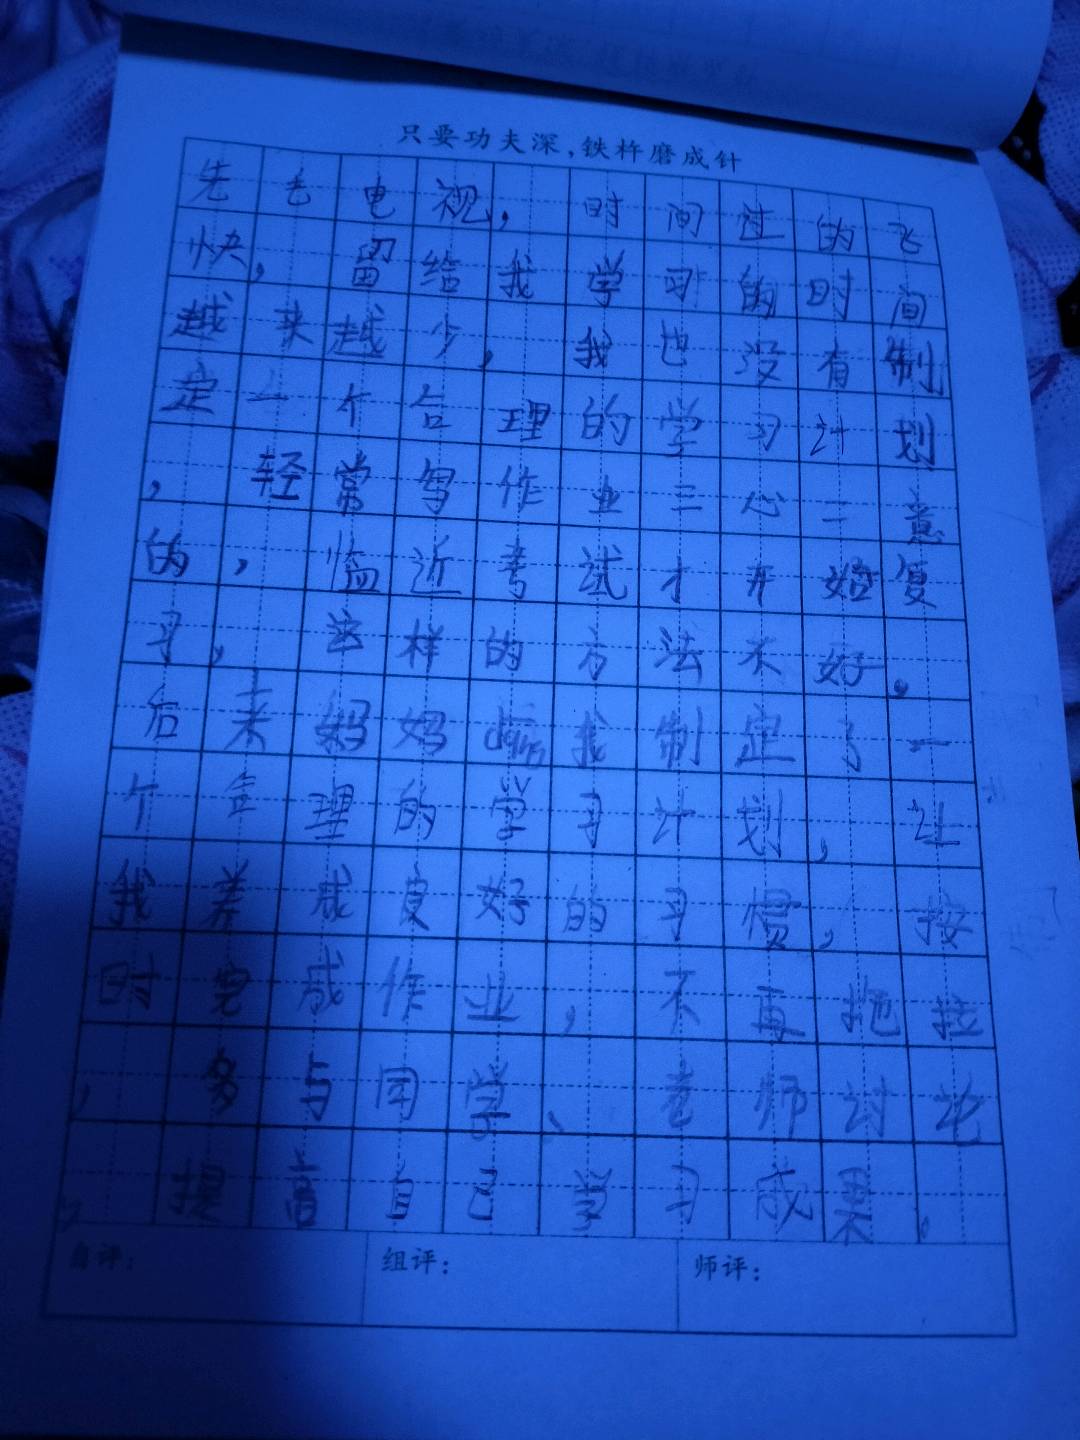 只要功夫深，铁杵磨成针
先去电视，时间过的飞
快，留给我学习的时间
越来越少，我也没有制
定一个合理的学习计划
，轻常写作业三心二意
的，临近考试才开始复
习，这样的方法不好。
后来妈妈我制定了一
个合理的学习计划，让
我养成良好的习惯，按
时完成作业，不再拖拉
，多与同学、老师讨论
，提高自己学习成果。
自评： 组评： 师评：